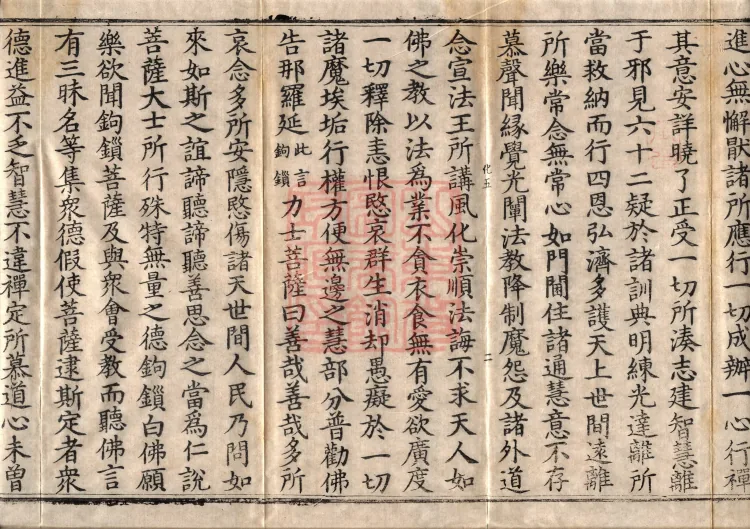 進心無懈猒諸所應行一切成辦一心行禪
其意安詳曉了正受一切所湊志建智慧離
于邪見六十二疑於諸訓典明練光達離所
當救納而行四恩弘濟多護天上世間遠離
所樂常念無常心如門閫住諸通慧意不存
慕聲聞緣覺光闡法教降制魔怨及諸外道
化五
二
念宣法王所講風化崇順法誨不求天人如
佛之教以法為業不貪衣食無有愛欲廣度
一切釋除恚恨愍哀群生消却愚癡於一切
諸魔埃垢行權方便無邊之慧部分普勸佛
告那羅延此言鉤鎖力士菩薩曰善哉善哉多所
哀念多所安隱愍傷諸天世間人民乃問如
來如斯之誼諦聽諦聽善思念之當為仁說
菩薩大士所行殊特無量之德鉤鎖白佛願
樂欲聞鉤鎖菩薩及與眾會受教而聽佛言
有三昧名等集衆德假使菩薩逮斯定者衆
德進益不乏智慧不違禪定所慕道心未曾